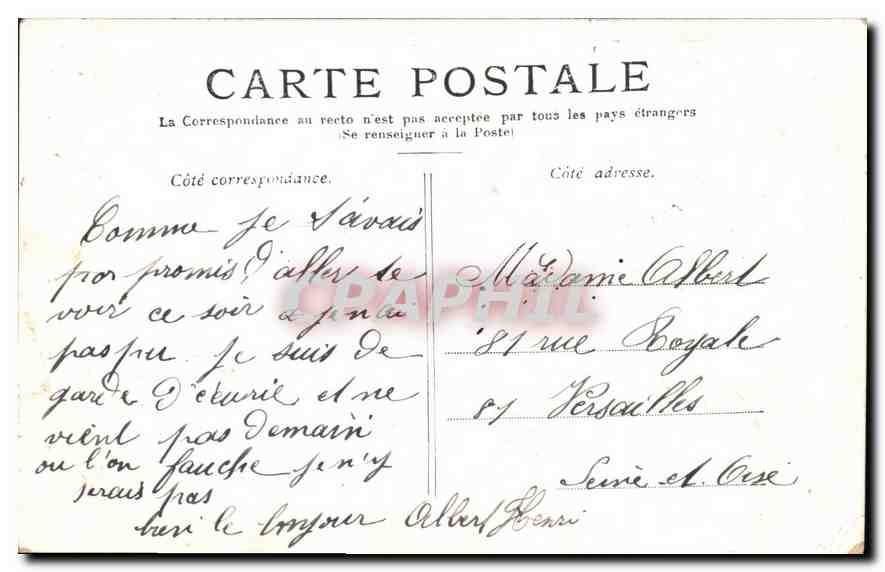 CARTE POSTALE
La Correspondance au recto n'est pas acceptée par tous les pays étrangers
(Se renseigner à la Poste)
Côté correspondance.
Comme je t'avais
par promis d'aller te
voir ce soir je n'ai
pas pu je suis de
garde d'écurie et ne
vient pas demain
ou l'on fauche je n'y
serais pas
bien le bonjour Albert Henri
Côté adresse.
Madame Albert
81 rue Royale
81 Versailles
Seine et Oise
CPAPHIL